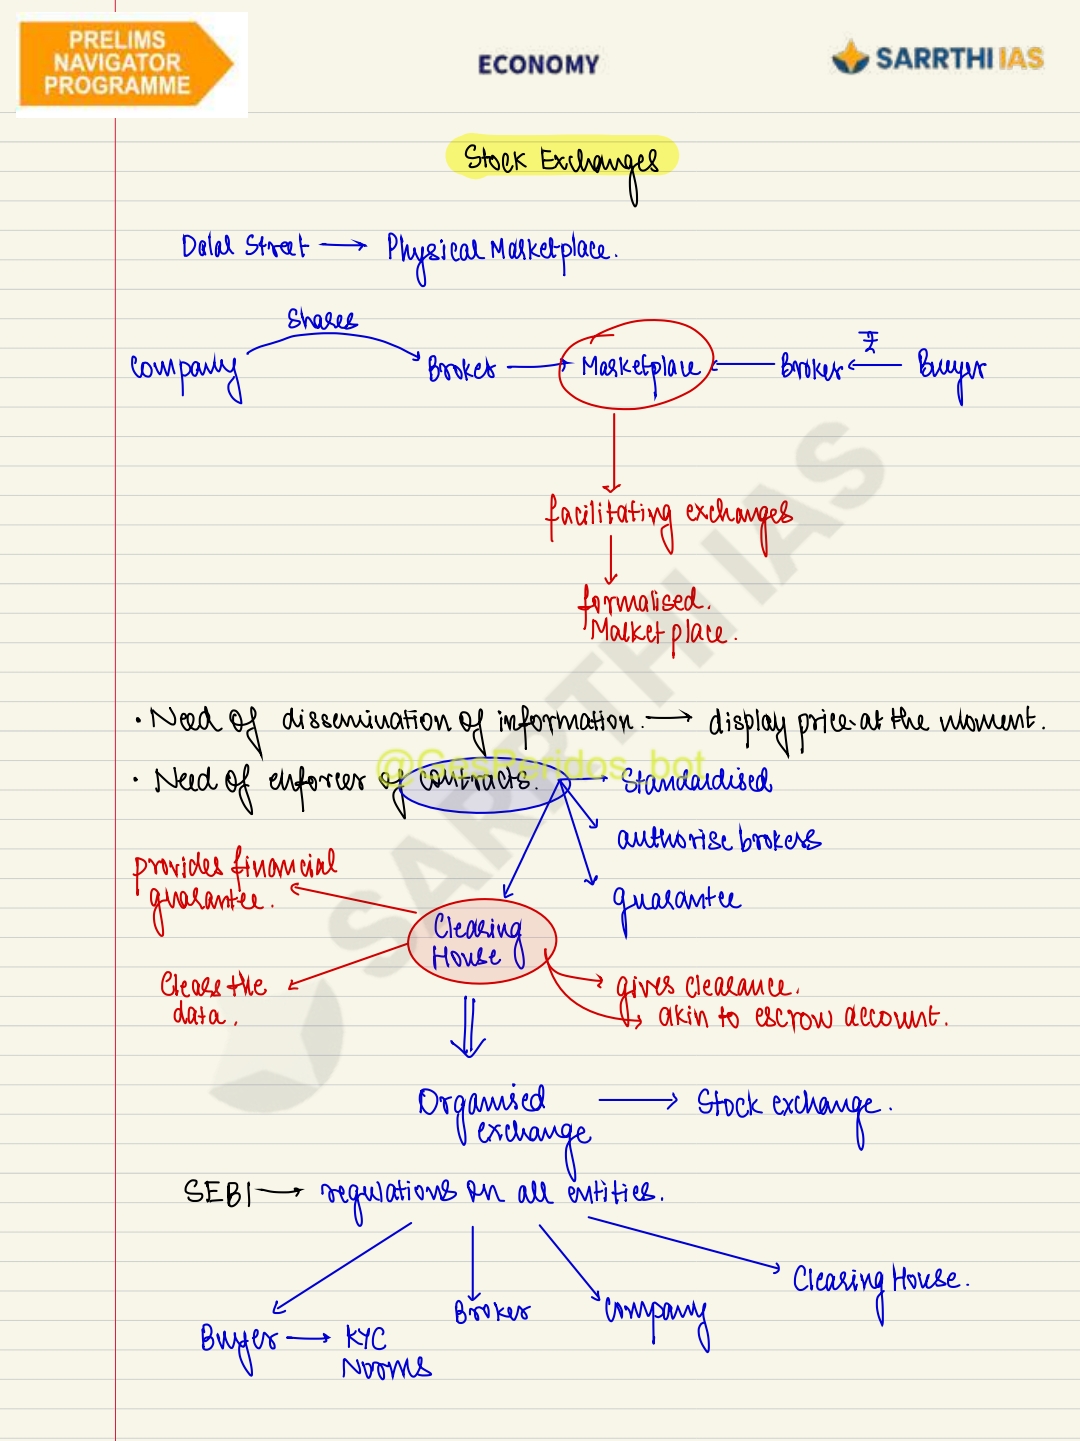 PRELIMS
NAVIGATOR
PROGRAMME
ECONOMY
SARRTHI IAS
Stock Exchanges
Dalal Street → Physical Marketplace.
Shares
Company → Broker → Marketplace ← Broker ← ₹ Buyer
facilitating exchanges
formalised.
Marketplace.
• Need of dissemination of information. → display price at the moment.
@GesPeridos_bot
• Need of enforcer of contracts. → Standardised
authorise brokers
provides financial
guarantee.
guarantee
Clearing
House
Clears the
data.
gives clearance.
akin to escrow account.
Organised
exchange → Stock exchange.
SEBI → regulations on all entities.
Clearing House.
Broker
Company
Buyer → KYC
Norms
SARRTHI IAS